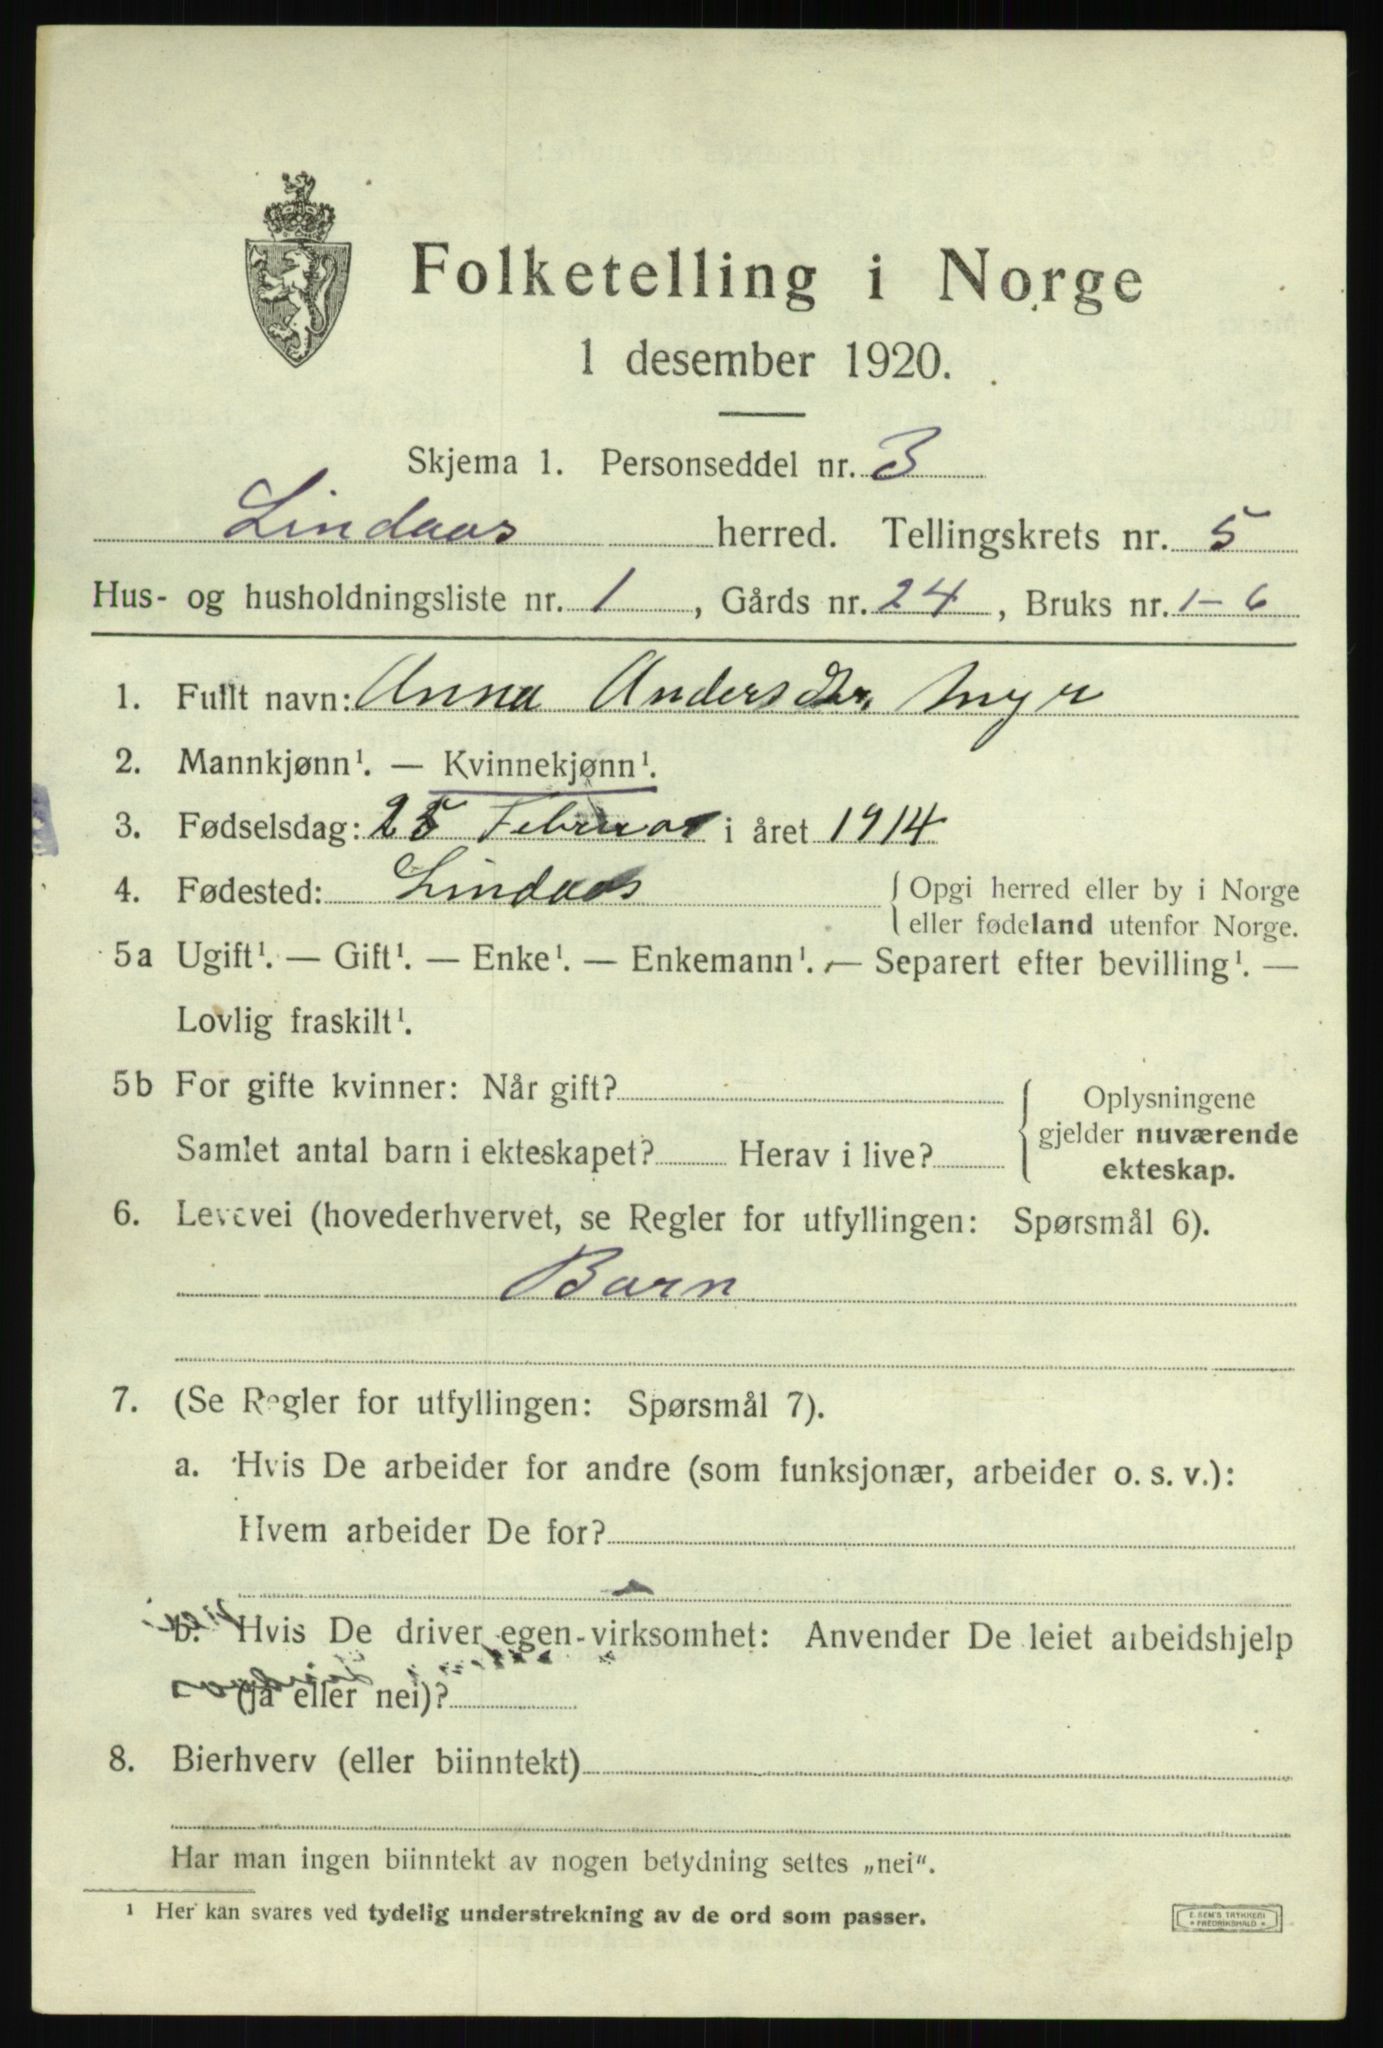 Folketelling i Norge
1 desember 1920.
Skjema 1. Personseddel nr. 3
Lindaas herred. Tellingskrets nr. 5
Hus- og husholdningsliste nr. 1, Gårds nr. 24, Bruks nr. 1-6
1. Fullt navn: Anna Andersdtr. Myr
2. Mannkjønn¹. — Kvinnekjønn¹.
3. Fødselsdag: 25 Februar i året 1914
4. Fødested: Lindaas {Opgi herred eller by i Norge
eller fødeland utenfor Norge.
5a Ugift¹. — Gift¹. — Enke¹. — Enkemann¹. — Separert efter bevilling¹. —
Lovlig fraskilt¹.
5b For gifte kvinner: Når gift? Oplysningene
gjelder nuværende
Samlet antal barn i ekteskapet? Herav i live?
ekteskap.
6. Levevei (hovederhvervet, se Regler for utfyllingen: Spørsmål 6).
Barn
7. (Se Regler for utfyllingen: Spørsmål 7).
a. Hvis De arbeider for andre (som funksjonær, arbeider o. s. v.):
Hvem arbeider De for?
b. Hvis De driver egen virksomhet: Anvender De leiet arbeidshjelp
(ja eller nei)?
8. Bierhverv (eller biinntekt)
Har man ingen biinntekt av nogen betydning settes „nei“.
¹ Her kan svares ved tydelig understrekning av de ord som passer.
E. SEM'S TRYKKERI
* FREDRIKSHALD *